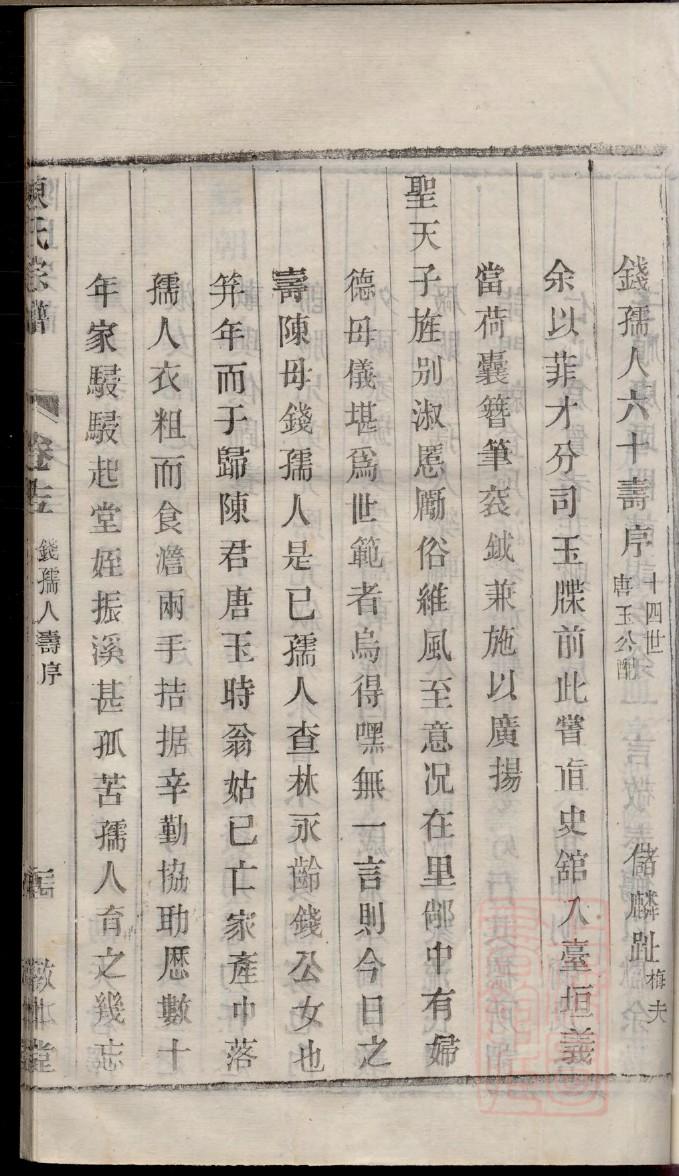 錢孺人六十壽序 十四世唐玉公配 儲麟趾 梅夫
余以菲才分司玉牒前此嘗直史舘入臺垣義
當荷囊簪筆袞鉞兼施以廣揚
聖天子旌别淑慝勵俗維風至意况在里鄰中有婦
德母儀堪爲世範者烏得嘿無一言則今日之
壽陳母錢孺人是已孺人查林永齡錢公女也
笄年而于歸陳君唐玉時翁姑已亡家產中落
孺人衣粗而食澹兩手拮据辛勤協助歷數十
年家駸駸起堂姪振溪甚孤苦孺人育之幾忘
陳氏宗譜 錢孺人壽序 敦本堂